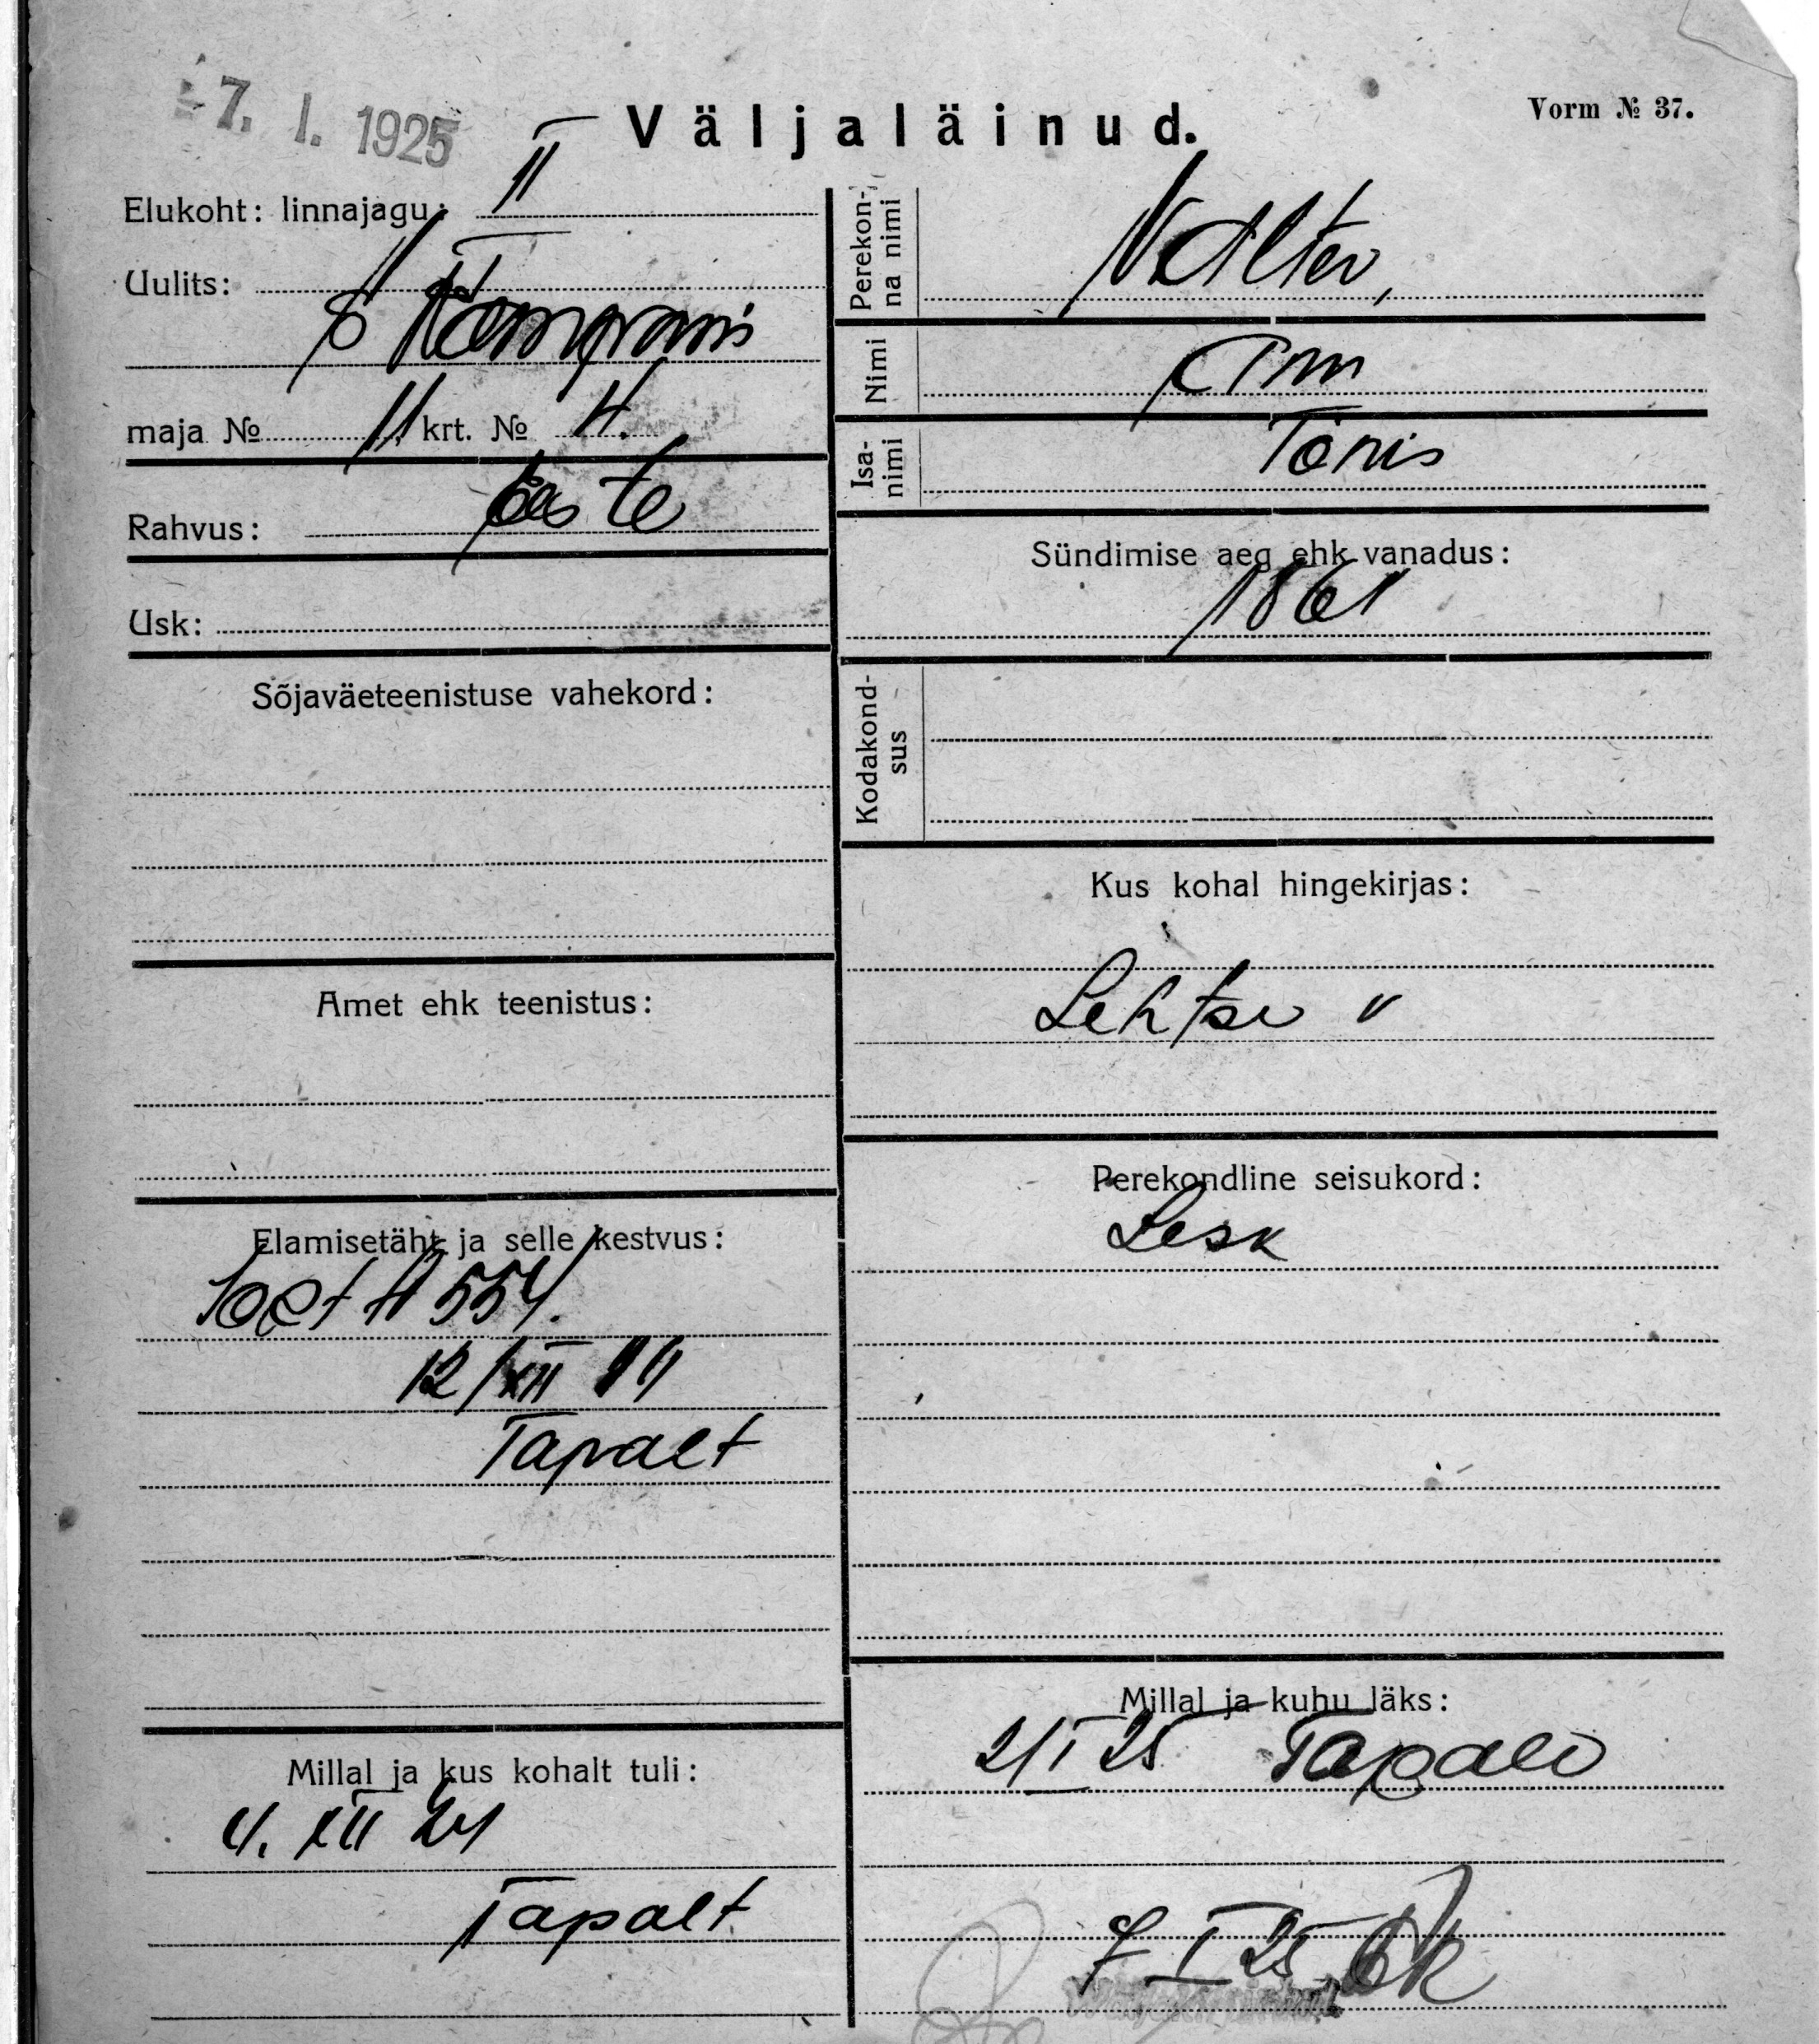 - 7. I. 1925
Väljaläinud.
Vorm № 37.
Elukoht: linnajagu: II
Uulits:
maja № 11 krt. № 4.
Rahvus: Eesti
Usk:
Sõjaväeteenistuse vahekord:
Amet ehk teenistus:
Elamisetäht ja selle kestvus:
554.
12/XII
Tapalt
Millal ja kus kohalt tuli:
4. XII 24
Tapalt
Perekon-
na nimi
Valter,
Nimi
Ann
Isa-
nimi
Tõnis
Sündimise aeg ehk vanadus:
1861
Kodakond-
sus
Kus kohal hingekirjas:
Lehtse v
Perekondline seisukord:
Lesk
Millal ja kuhu läks:
2/I 25 Tapale
7 I 25